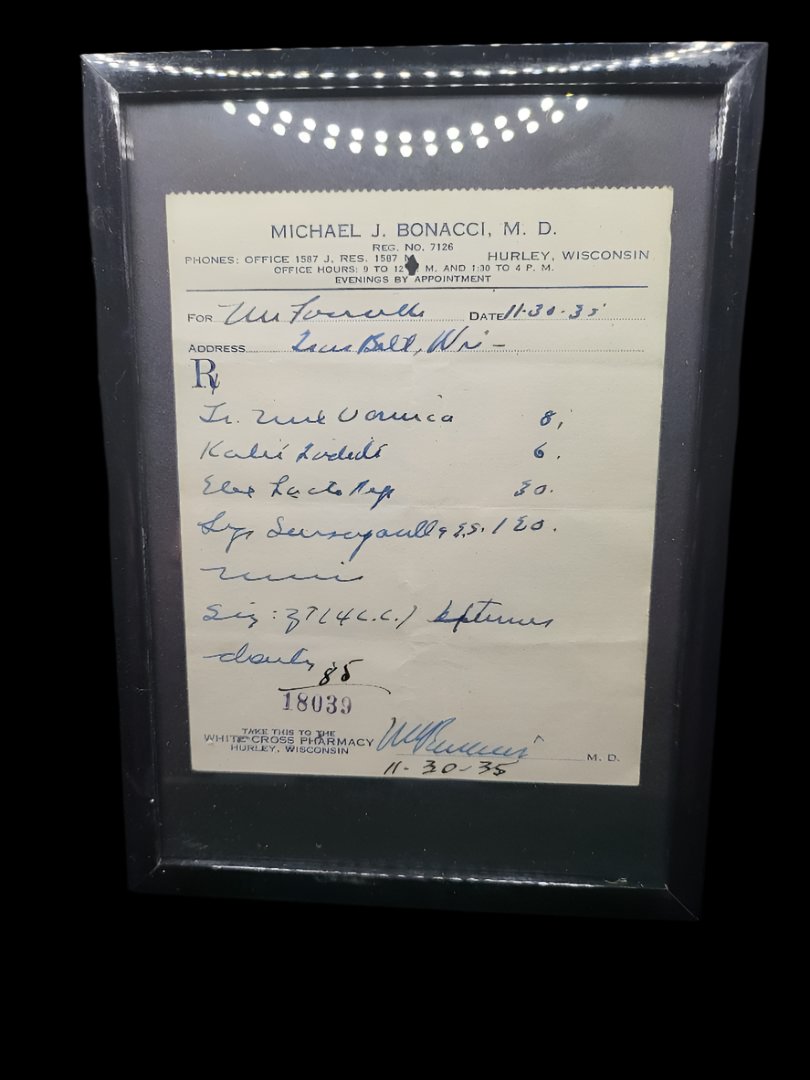 MICHAEL J. BONACCI, M. D.
REG. NO. 7126
PHONES: OFFICE 1587 J, RES. 1587 HURLEY, WISCONSIN
OFFICE HOURS: 9 TO 12 M. AND 1:30 TO 4 P. M.
EVENINGS BY APPOINTMENT
FOR DATE 11-30-35
ADDRESS Belt, Wis-
Rx
Tr. Nux Vomica 8,
Kalii Iodidi 6.
Elix Lacto Pep 30.
Syr q.s. 120.
Sig: (4 c.c.)
85
18039
TAKE THIS TO THE
WHITE CROSS PHARMACY
HURLEY, WISCONSIN
M. D.
11-30-35